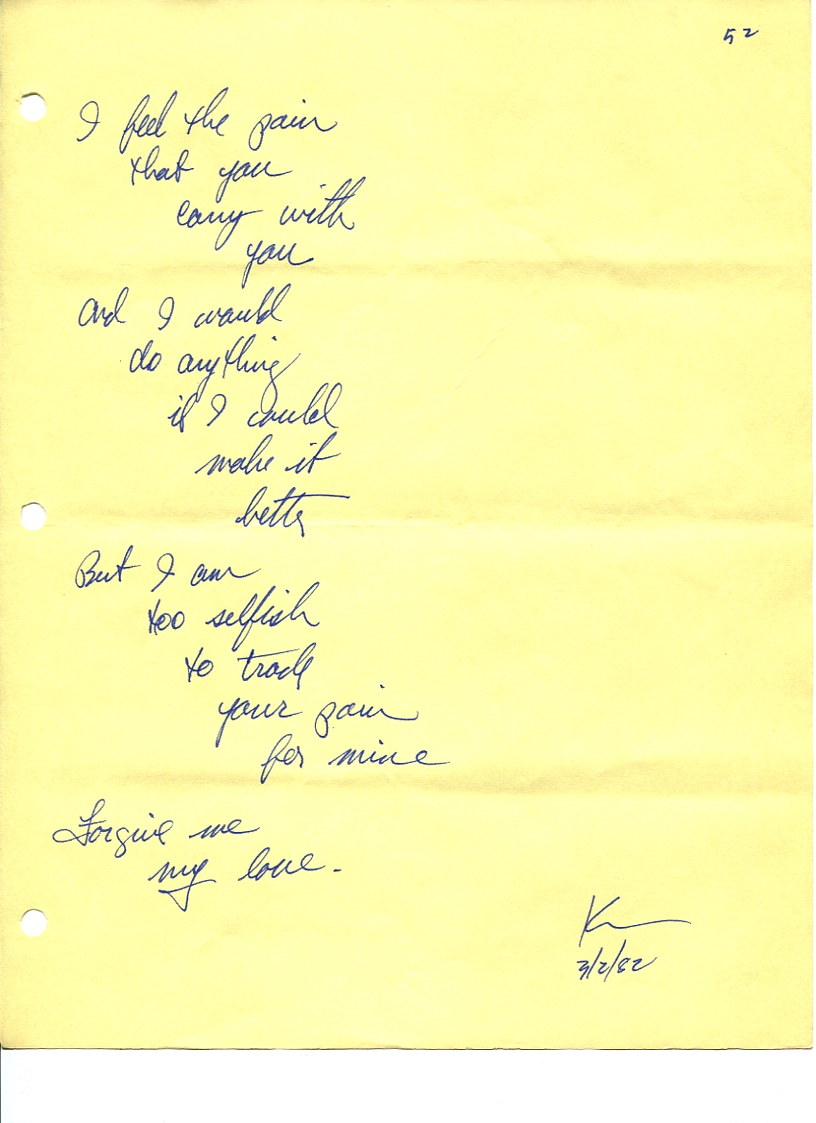 52
I feel the pain
that you
carry with
you
And I would
do anything
if I could
make it
better
But I am
too selfish
to trade
your pain
for mine
Forgive me
my love.
K
3/2/82